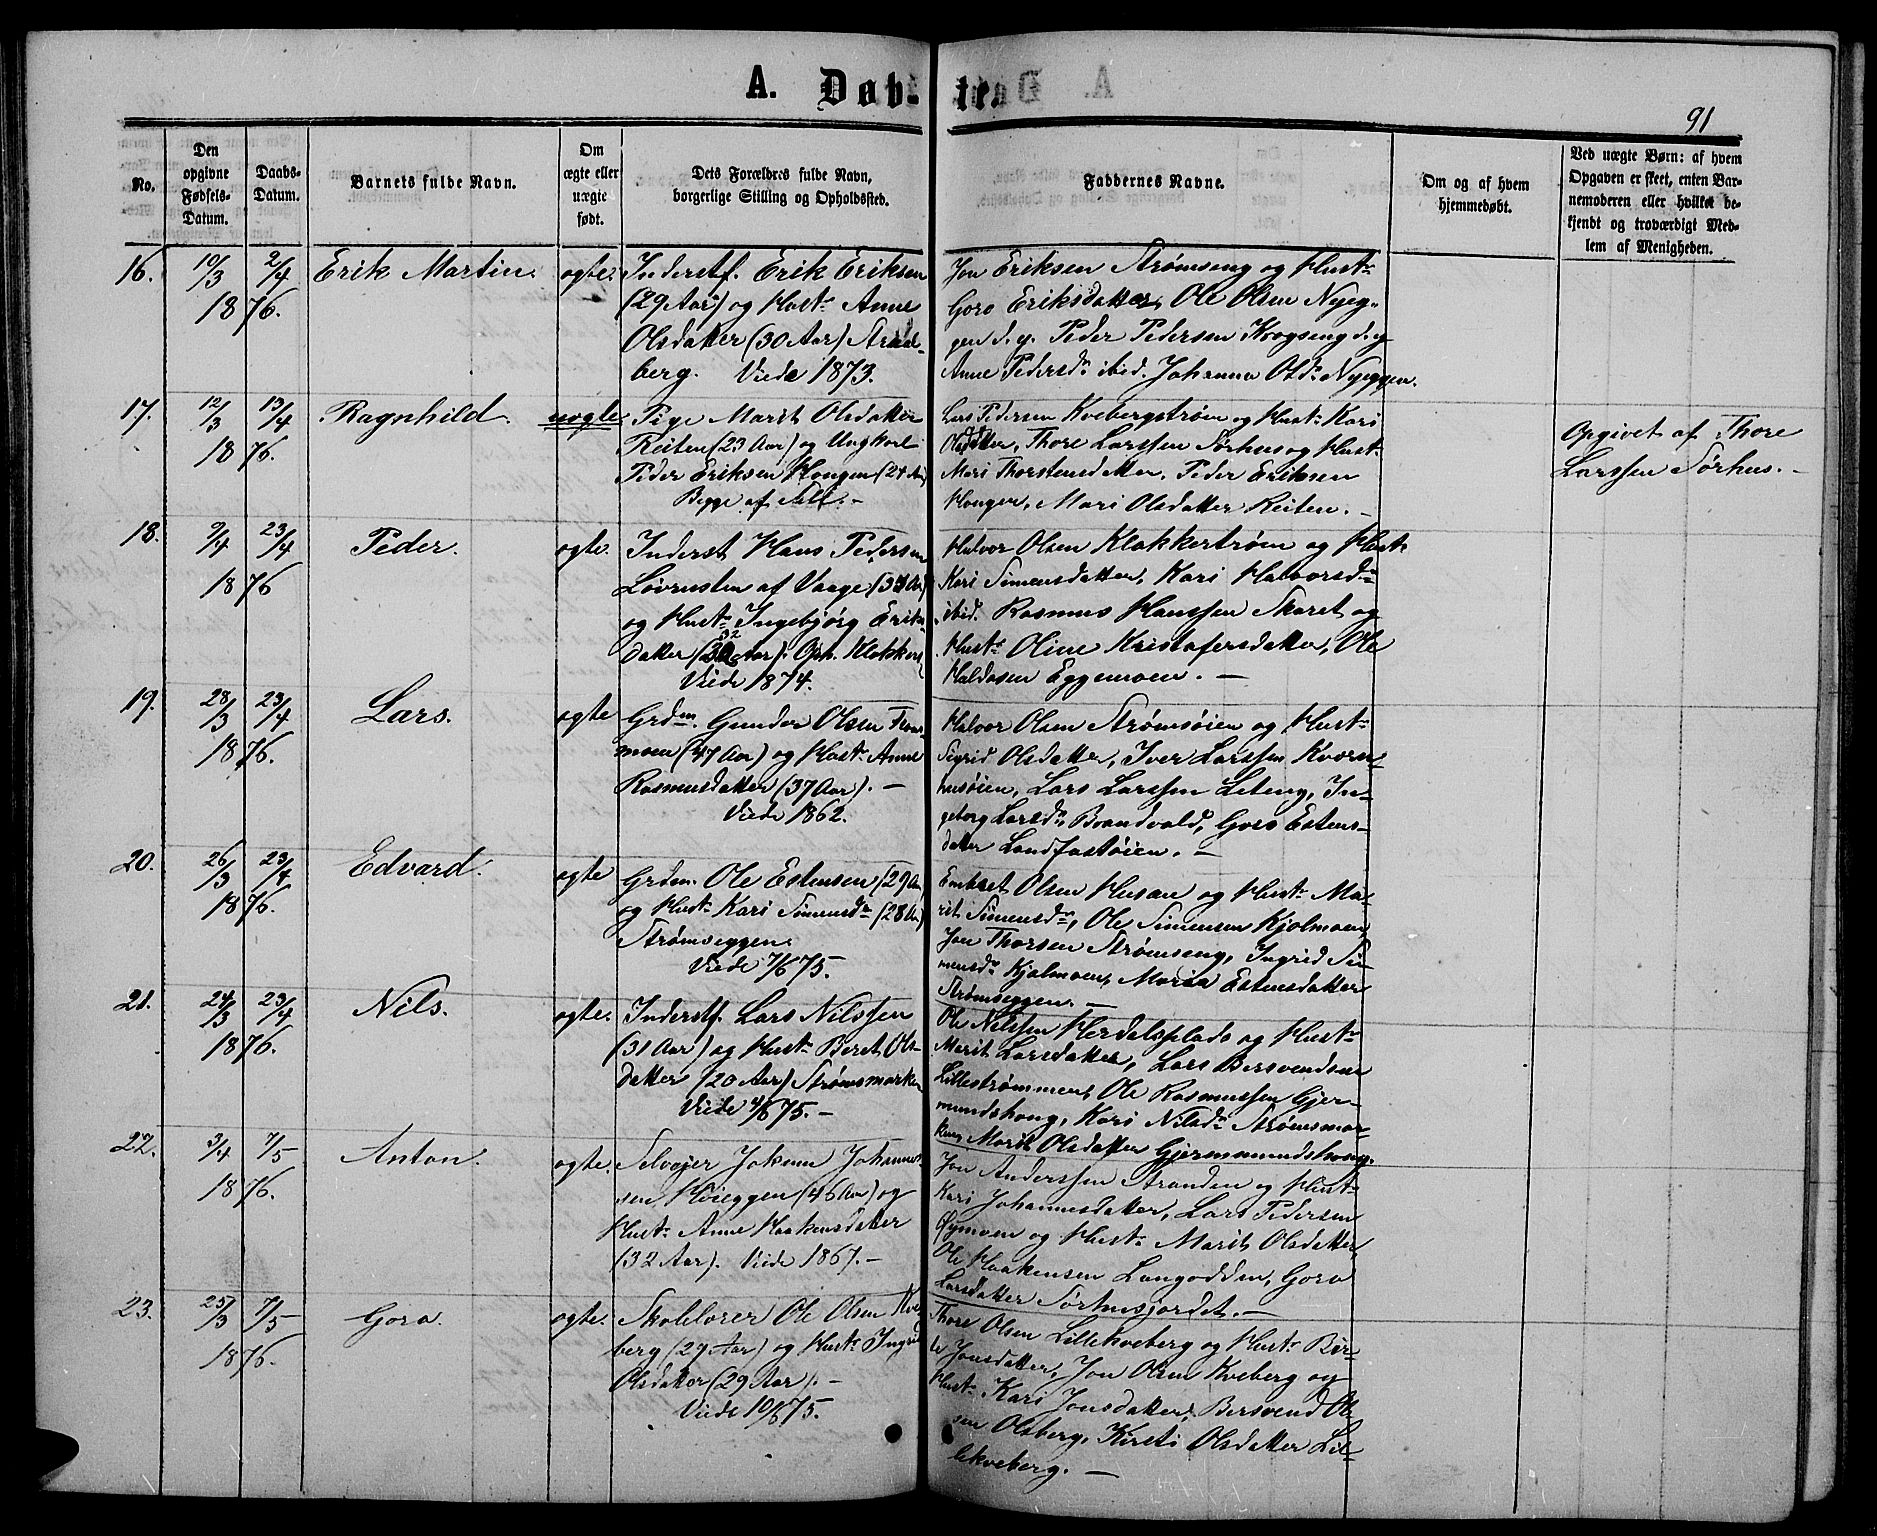 A. Døb- te.
91
No.
Den opgivne Fødsels-Datum.
Daabs-Datum.
Barnets fulde Navn.
Om ægte eller uægte født.
Dets Forældres fulde Navn, borgerlige Stilling og Opholdssted.
Faddernes Navne.
Om og af hvem hjemmedøbt.
Ved uægte Børn: af hvem Opgaven er skeet, enten Barnemoderen eller hvilket bekjendt og troværdigt Medlem af Menigheden.
16. 10/3 2/4 1876. Erik Martin. ægte.
Inderstf. Erik Eriksen
(29 Aar) og Hustr Anne
Olsdatter (30 Aar)
berg. Viede 1873.
Jon Eriksen Strømseng og Hustr
Goro Eriksdatter, Ole Olsen Nyeg-
gen d.y. Peder Pedersen Krogseng d.y
Anne Pedersdr ibid. Johanna Olsdr Nyeggen.
17. 12/3 13/4 1876. Ragnhild. uægte
Pige Marit Olsdatter
Reiten (23 Aar) og Ungkarl
Peder Eriksen Haugen (24 Aar)
Begge af Sell. -
Lars Pedersen Kvebergstrøm og Hustr Kari
Olsdatter, Thore Larssen Sørhus og Hustr
Mari Thorstensdatter. Peder Eriksen
Haugen, Mari Olsdatter Reiten. -
Opgivet af Thore
Larssen Sørhus. -
18. 9/4 23/4 1876 Peder. ægte.
Inderst Hans Pedersen
af Vaage (34 Aar)
og Hustr Ingebjørg Eriks-
datter (32 Aar). Oph.
Viede 1874.
Halvor Olsen Klokkerstrøm og Hustr
Kari Simensdatter, Kari Halvorsdr
ibid. Rasmus Hanssen Skaret og
Hustr Oline Kristofersdatter, Ole
Haldosen Eggemoen. -
19. 28/3 23/4 1876. Lars. ægte
Grdm. Gunder Olsen
moen (47 Aar) og Hustr Anne
Rasmusdatter (37 Aar). -
Viede 1862.
Halvor Olsen Strømsøien og Hustr
Sigrid Olsdatter, Iver Larssen Kværn-
husøien, Lars Larssen Liteng, In-
geborg Larsdr Brandvold, Goro Estens-
datter Landfastøien. -
20. 26/3 23/4 1876. Edvard. ægte
Grdm. Ole Estensen (29 Aar)
og Hustr Kari Simensdr (28 Aar)
Strømseggen.
Viede 7/6 75.
Embret Olsen Husan og Hustr Ma-
rit Simensdr, Ole Simensen Kjølmoen,
Jon Thorsen Strømseng, Ingrid Si-
mensdr Kjølmoen, Maria Estensdatter
Strømseggen. -
21. 24/3 23/4 1876. Nils. ægte.
Inderstf. Lars Nilssen
(31 Aar) og Hustr Beret Ols-
datter (20 Aar) Strømsmarken
Viede 4/6 75. -
Ole Nilssen Herdalsplads og Hustr
Marit Larsdatter, Lars Bersvendsen
Lillestrømmen, Ole Rasmussen Gjer-
mundshoug, Kari Nilsdr Strømsmar-
ken, Marit Olsdatter Gjermmundshoug.
22. 3/4 7/5 1876. Anton. ægte.
Selveier Jokum Johannes-
sen Høieggen (46 Aar) og
Hustr Anne Haakensdatter
(32 Aar). Viede 1867. -
Jon Anderssen Stranden og Hustr
Kari Johannesdatter, Lars Pedersen
Øymoen og Hustr Marit Olsdatter
Ole Haakensen Langodden, Goro
Larsdatter Sørhusjordet. -
23. 25/3 7/5 1876. Goro. ægte.
Skolelærer Ole Olsen Kve-
berg (27 Aar) og Hustr Ingrid
Olsdatter (29 Aar). -
Viede 10/6 75.
Thore Olsen Lillekveberg og Hustr Bir-
te Jonsdatter, Jon Olsen Kveberg og
Hustr Kari Jonsdatter, Bersvend Ol-
sen Olsberg, Kirsti Olsdatter Lil-
lekveberg. -